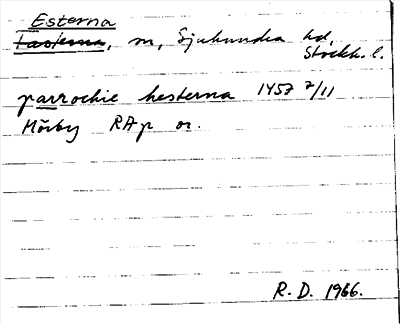 Esterna
Lasterna, sn, Sjuhundra hd,
Stockh. l.
parrochie hesterna 1457 7/11
Mörby RAp or.
R. D. 1966.